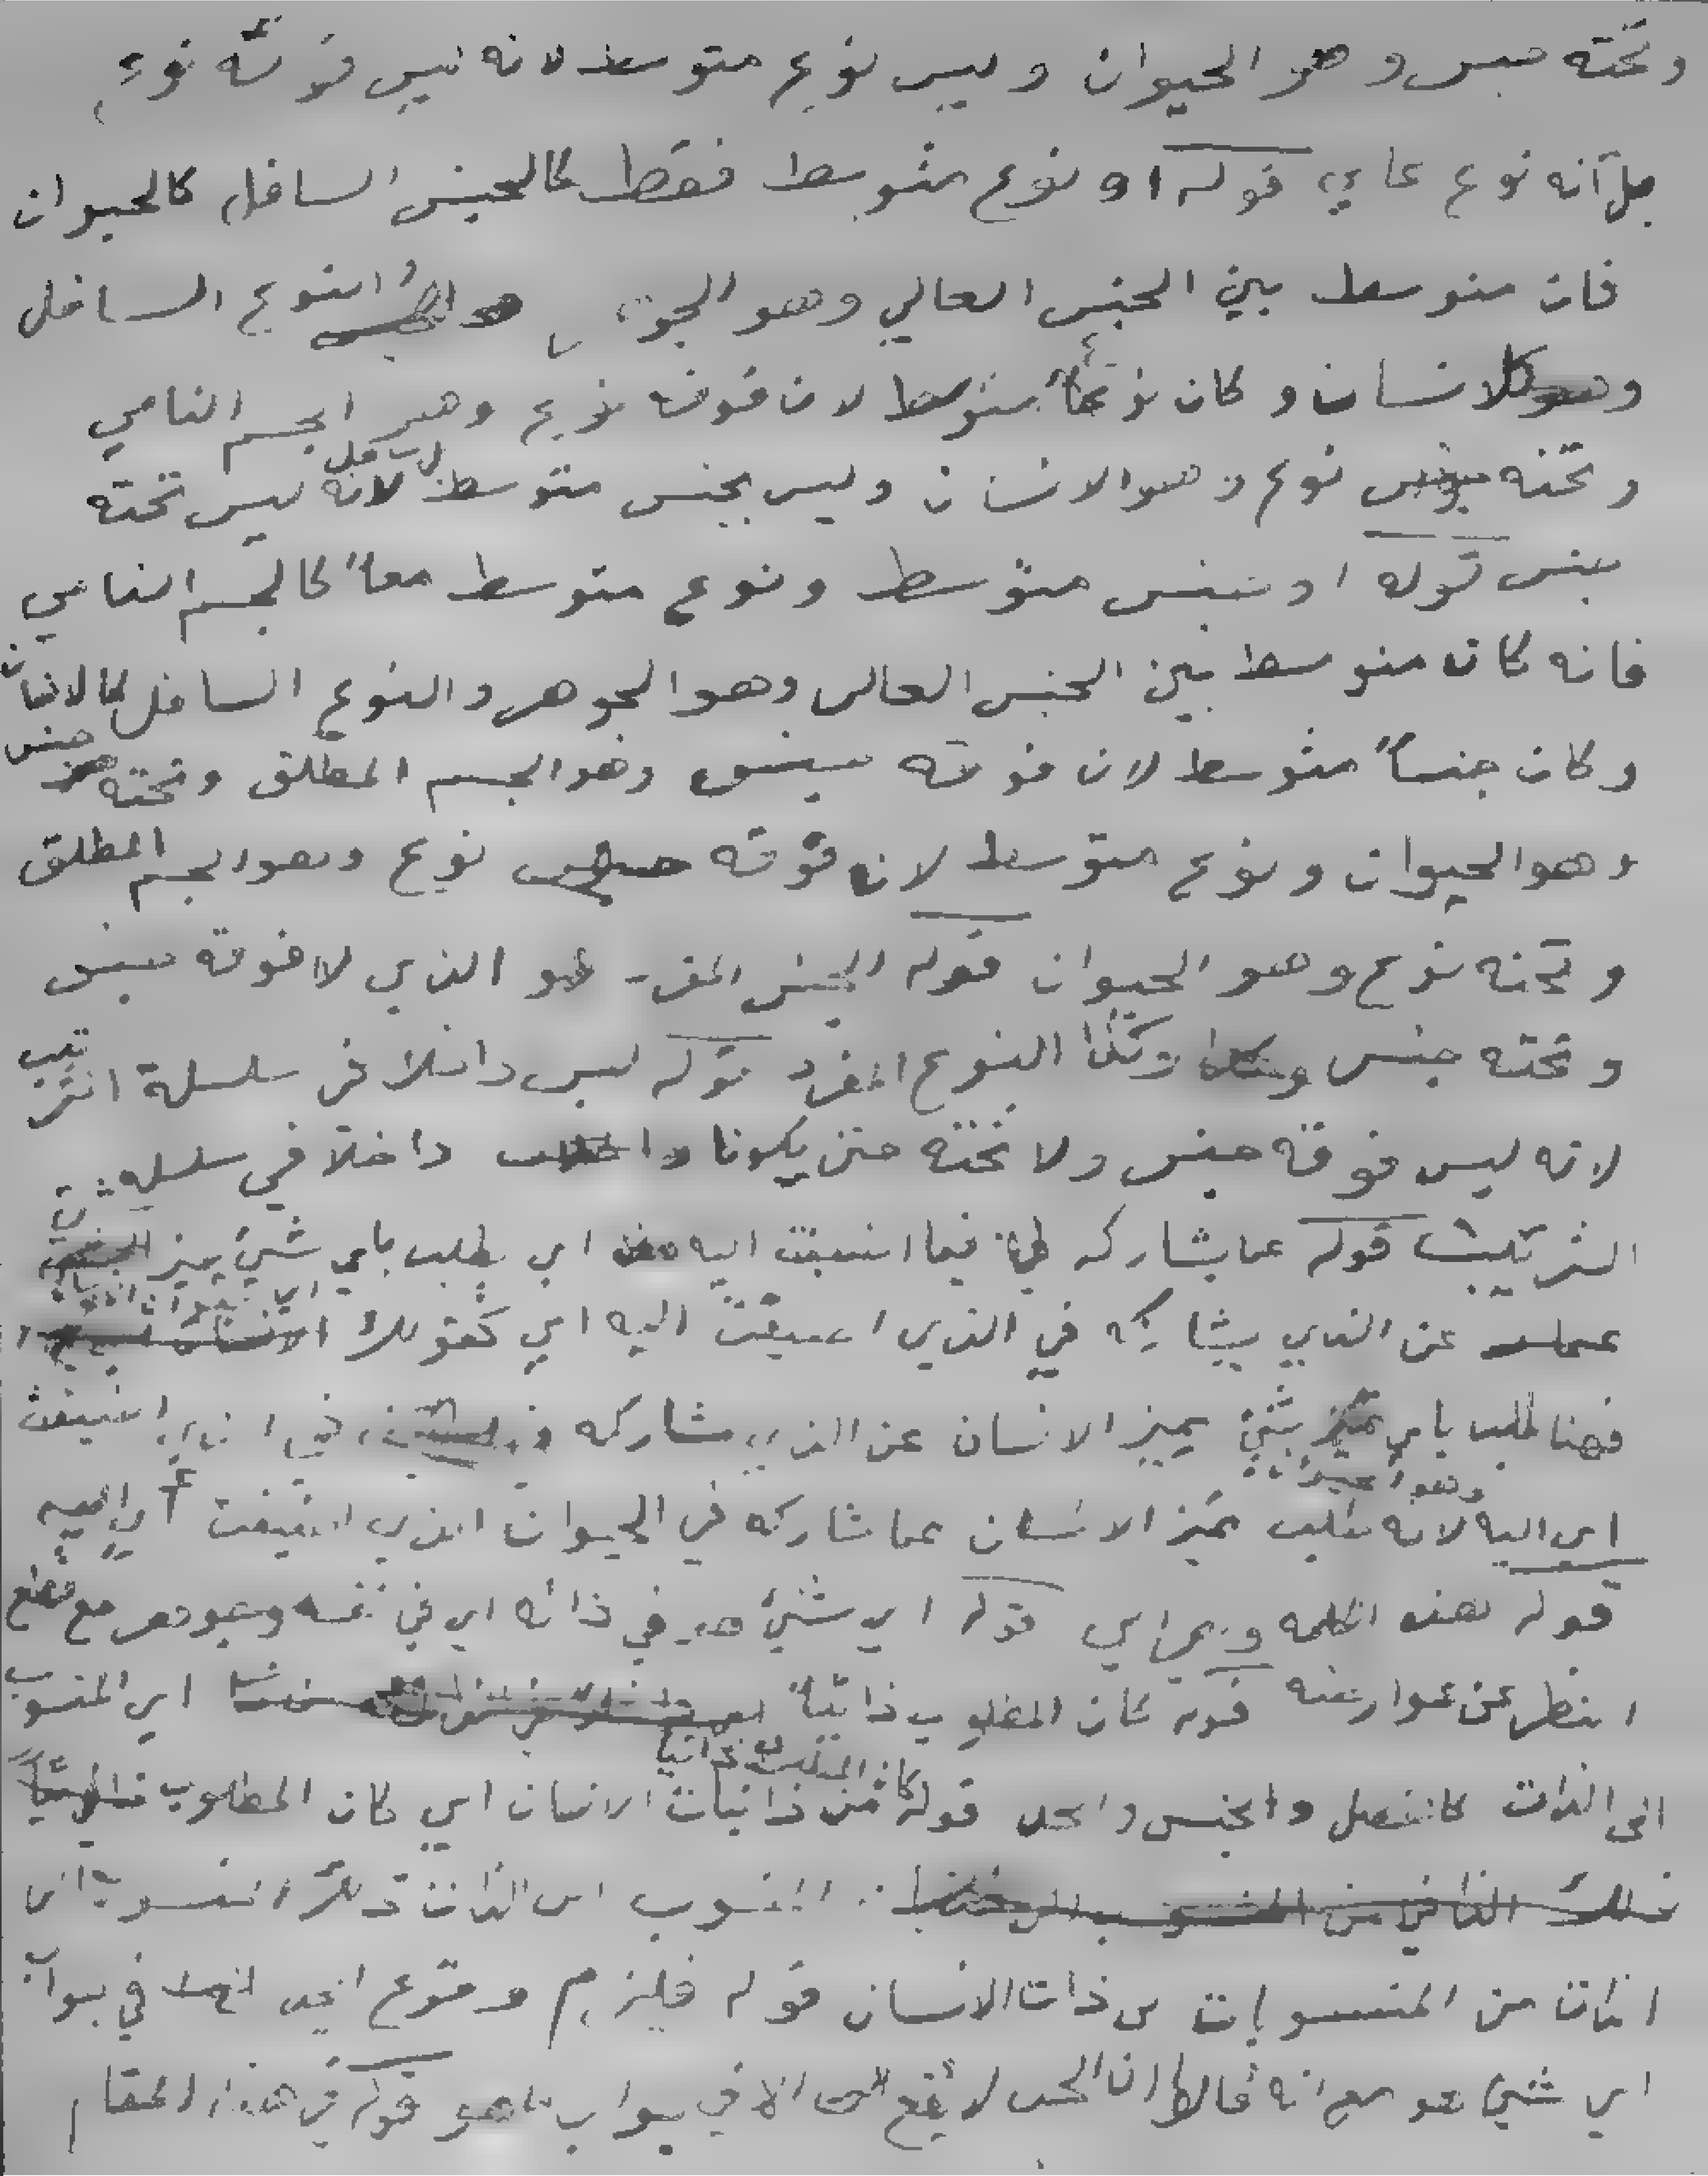 وتحته جنس وهو الحيوان وليس نوع متوسط لانه ليس فوقه نوع
بل انه نوع عالي قوله او نوع متوسط فقط كالجنس السافل كالحيوان
فان متوسط بين الجنس العالي وهو الجوهر والنوع السافل
وهو كالانسان وكان نوعاً متوسط لان فوقه نوع وهو الجسم النامي
وتحته نوع وهو الانسان وليس بجنس متوسط بل سافل لانه ليس تحته
جنس قوله او جنس متوسط ونوع متوسط معاً كالجسم النامي
فانه كان متوسط بين الجنس العالي وهو الجوهر والنوع السافل كالانسان
وكان جنساً متوسط لان فوقه جنس وهو الجسم المطلق وتحته جنس
وهو الحيوان ونوع متوسط لان فوقه نوع وهو الجسم المطلق
وتحته نوع وهو الحيوان قوله الجنس المفرد هو الذي لا فوقه جنس
وتحته جنس وكذا النوع المفرد قوله ليس داخلا في سلسلة الترتيب
لانه ليس فوقه جنس ولا تحته حتى يكونا داخلا في سلسله
الترتيب قوله عما يشاركه فيما اضيفت اليه اي يطلب باي شيئ يميز الشيئ
عن الذي يشاركه في الذي اضيفت اليه اي كقولك الانسان اي حيوان
فهنا طلب باي شيئ يميز الانسان عن الذي شاركه في الذي اضيفت
اي اليه وهو الحيوان لانه طلب مميز الانسان عما شاركه في الحيوان الذي اضيفت اي اليه
قوله هذه الكلمه وهي اي قوله اي شيئ هو في ذاته اي في نفسه وجوهره مع قطع
النظر عن عوارضه قوله كان المطلوب ذاتياً اي المنسوب
الى الذات كالفصل والجنس والحد قوله من ذاتيات الانسان اي كان المطلوب ذاتياً
المنسوب الى الذات ذلك المنسوب الى
الذات من المنسوبات الى ذات الانسان قوله فيلزم وقوع الحد في جواب
اي شيئ هو مع انه قالوا ان الحد لا يقع الا في جواب ما هو قوله في هذا المقام